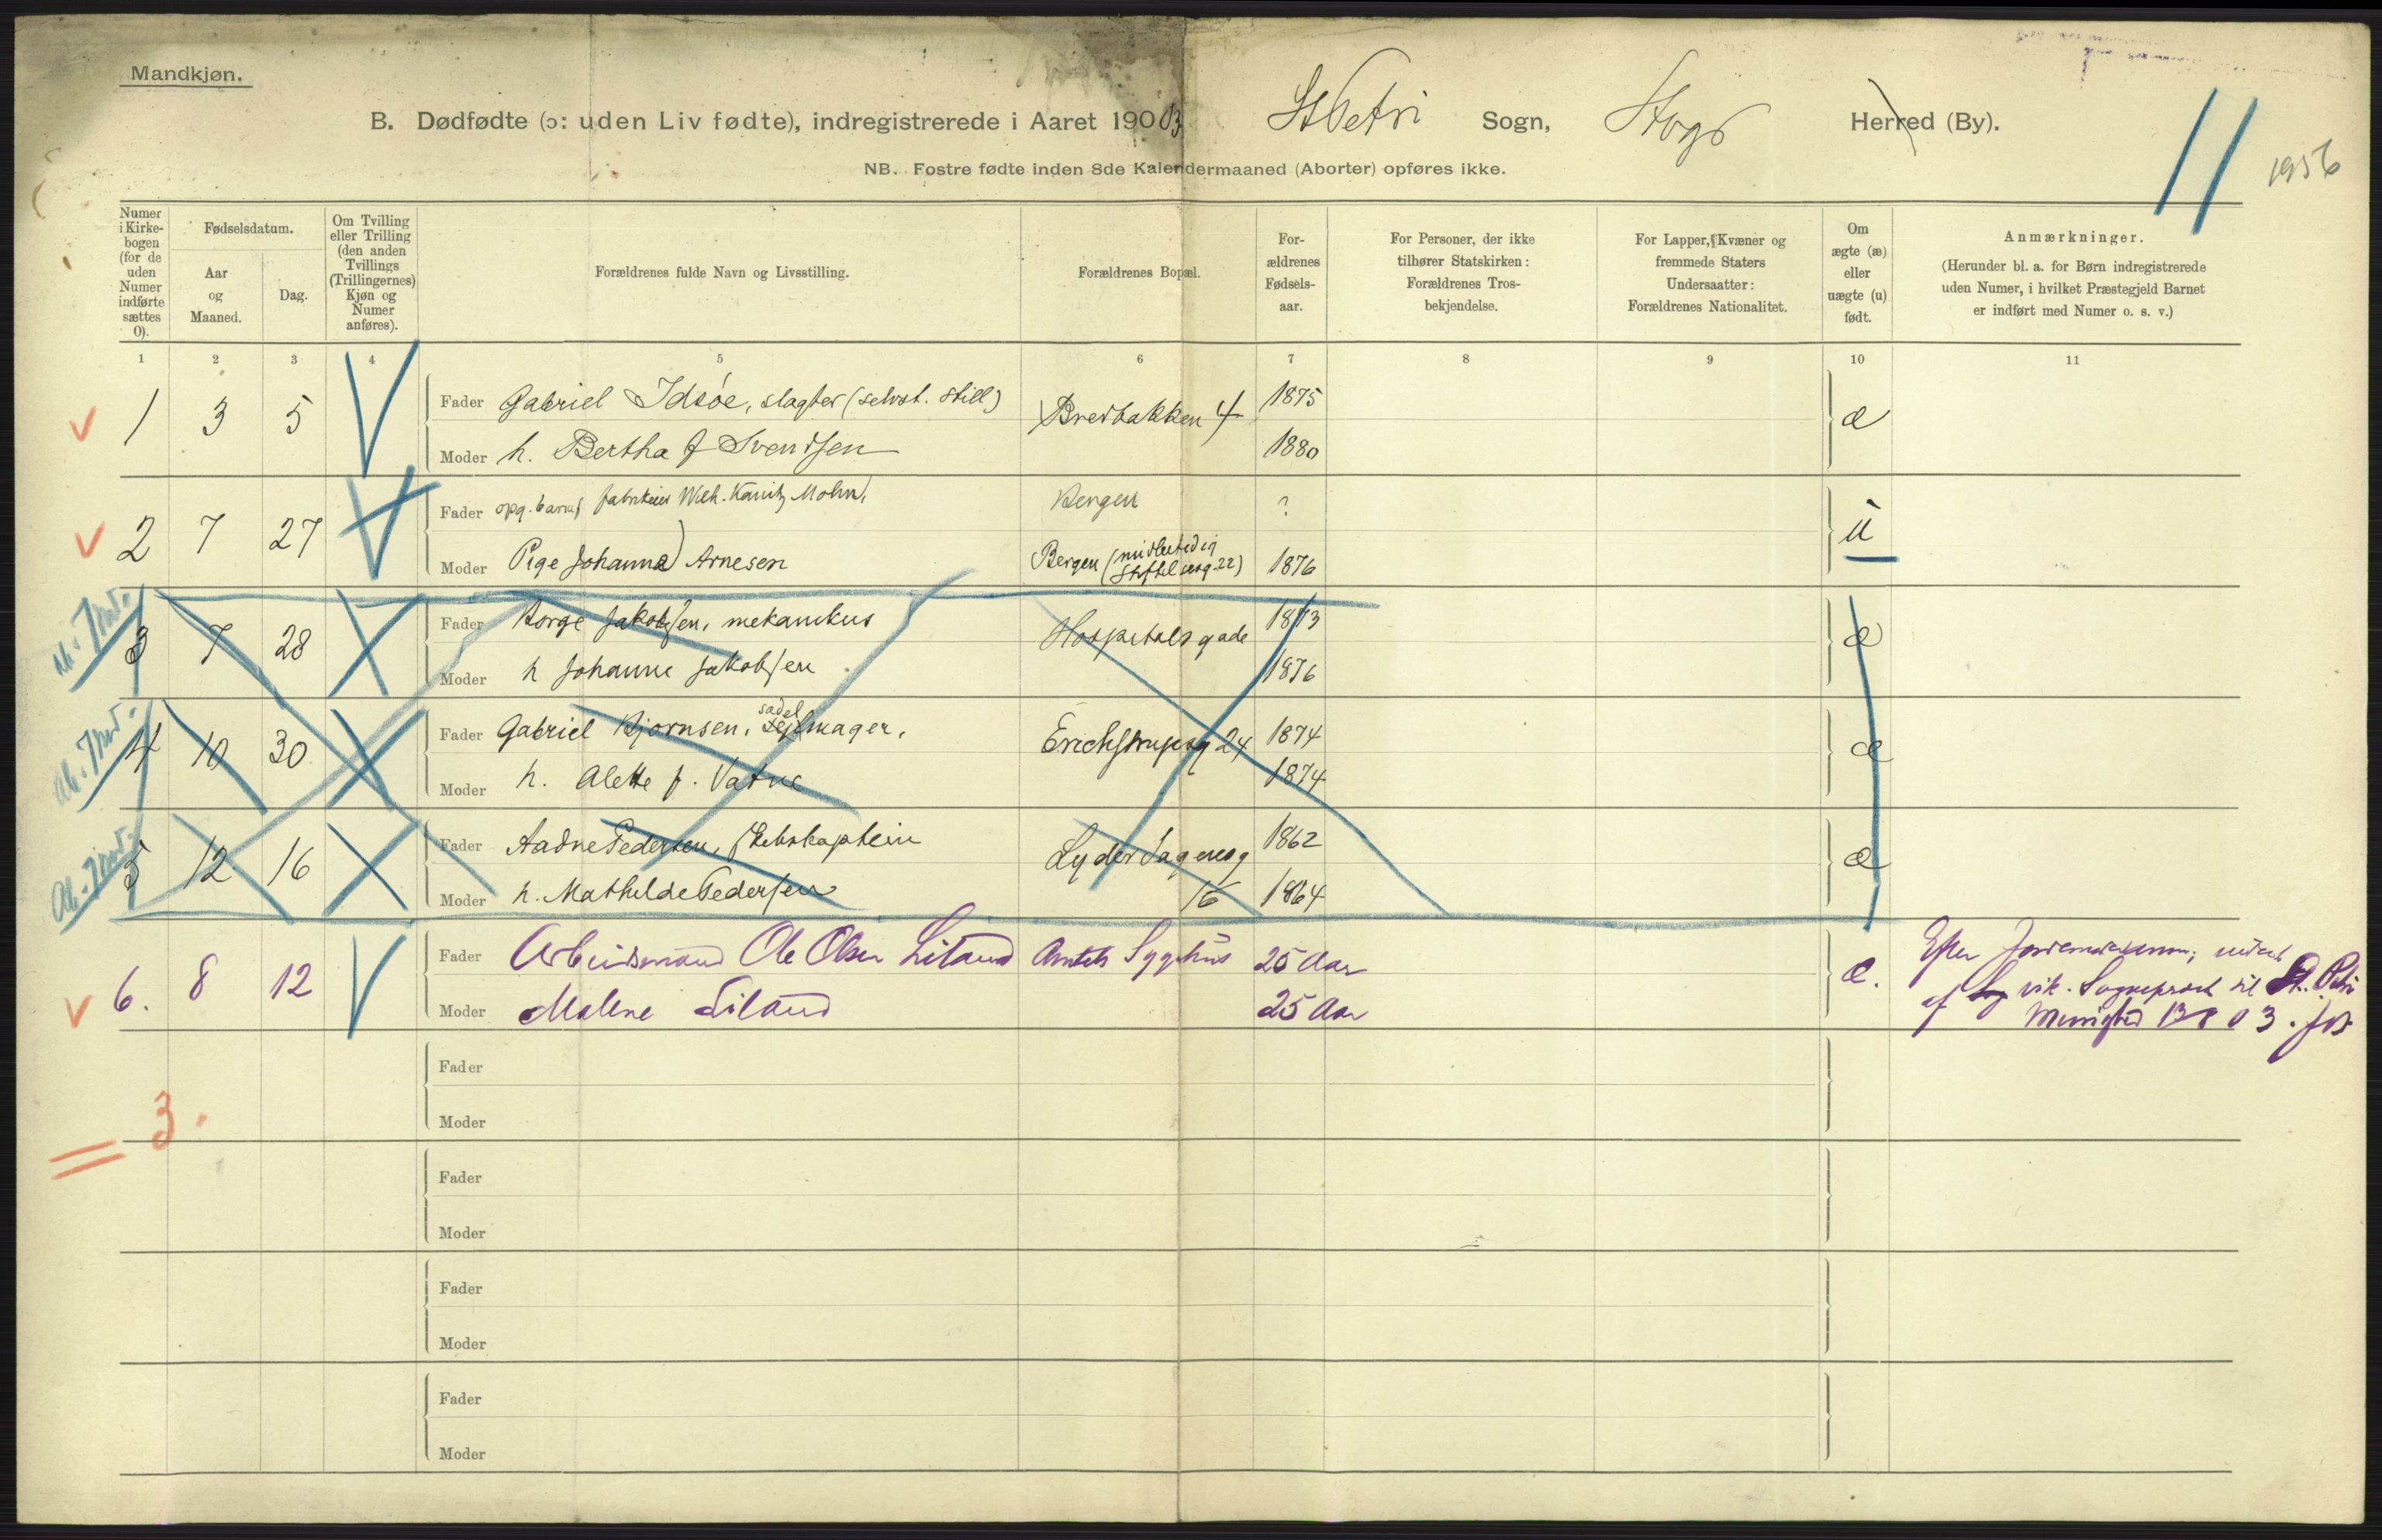 Mandkjøn.
B. Dødfødte (ɔ: uden Liv fødte), indregistrerede i Aaret 1903 St Petri Sogn, Stvgr Herred (By).
11
1956
NB. Fostre fødte inden 8de Kalendermaaned (Aborter) opføres ikke.
Numer i Kirke-bogen (for de uden Numer indførte sættes 0).
Fødselsdatum.
Aar og Maaned.
Dag.
Om Tvilling eller Trilling (den anden Tvillings (Trillingernes) Kjøn og Numer anføres).
Forældrenes fulde Navn og Livsstilling.
Forældrenes Bopæl.
For-ældrenes Fødsels-aar.
For Personer, der ikke tilhører Statskirken: Forældrenes Tros-bekjendelse.
For Lapper, Kvæner og fremmede Staters Undersaatter: Forældrenes Nationalitet.
Om ægte (æ) eller uægte (u) født.
Anmærkninger.
(Herunder bl. a. for Børn indregistrerede uden Numer, i hvilket Præstegjeld Barnet er indført med Numer o. s. v.)
1 2 3 4 5 6 7 8 9 10 11
1 3 5 Fader Gabriel Idsøe, slagter (selvst. still) Bredbakken 4 1875 æ
Moder h. Bertha f Svendsen 1880
2 7 27 Fader opg. barnef fabrikeier Wilh. Kanitz Mohn, Bergen ? u
Moder Pige Johanna Arnesen Bergen (midlertidig 22) 1876
3 7 28 Fader Borge Jakobsen, mekanikus Hospitalsgade 1873 æ
Moder h Johanne Jakobsen 1876
4 10 30 Fader Gabriel Bjørnsen, sadelmager. Erichstrupsg 24 1874 æ
Moder h. Alette f. Vatne 1874
5 12 16 Fader Aadne Pedersen, skibskaptein Lyder Sagensg 16 1862 æ
Moder h. Mathilde Pedersen 1864
6. 8 12 Fader Arbeidsmand Ole Olsen Liland Amtets Sygehus 25 Aar æ.
Moder Malene Liland 25 Aar
Efter
af vik. Sogneprest til St. Petri
Menighed 13 8 03.
= 3.
Fader
Moder
Fader
Moder
Fader
Moder
Fader
Moder